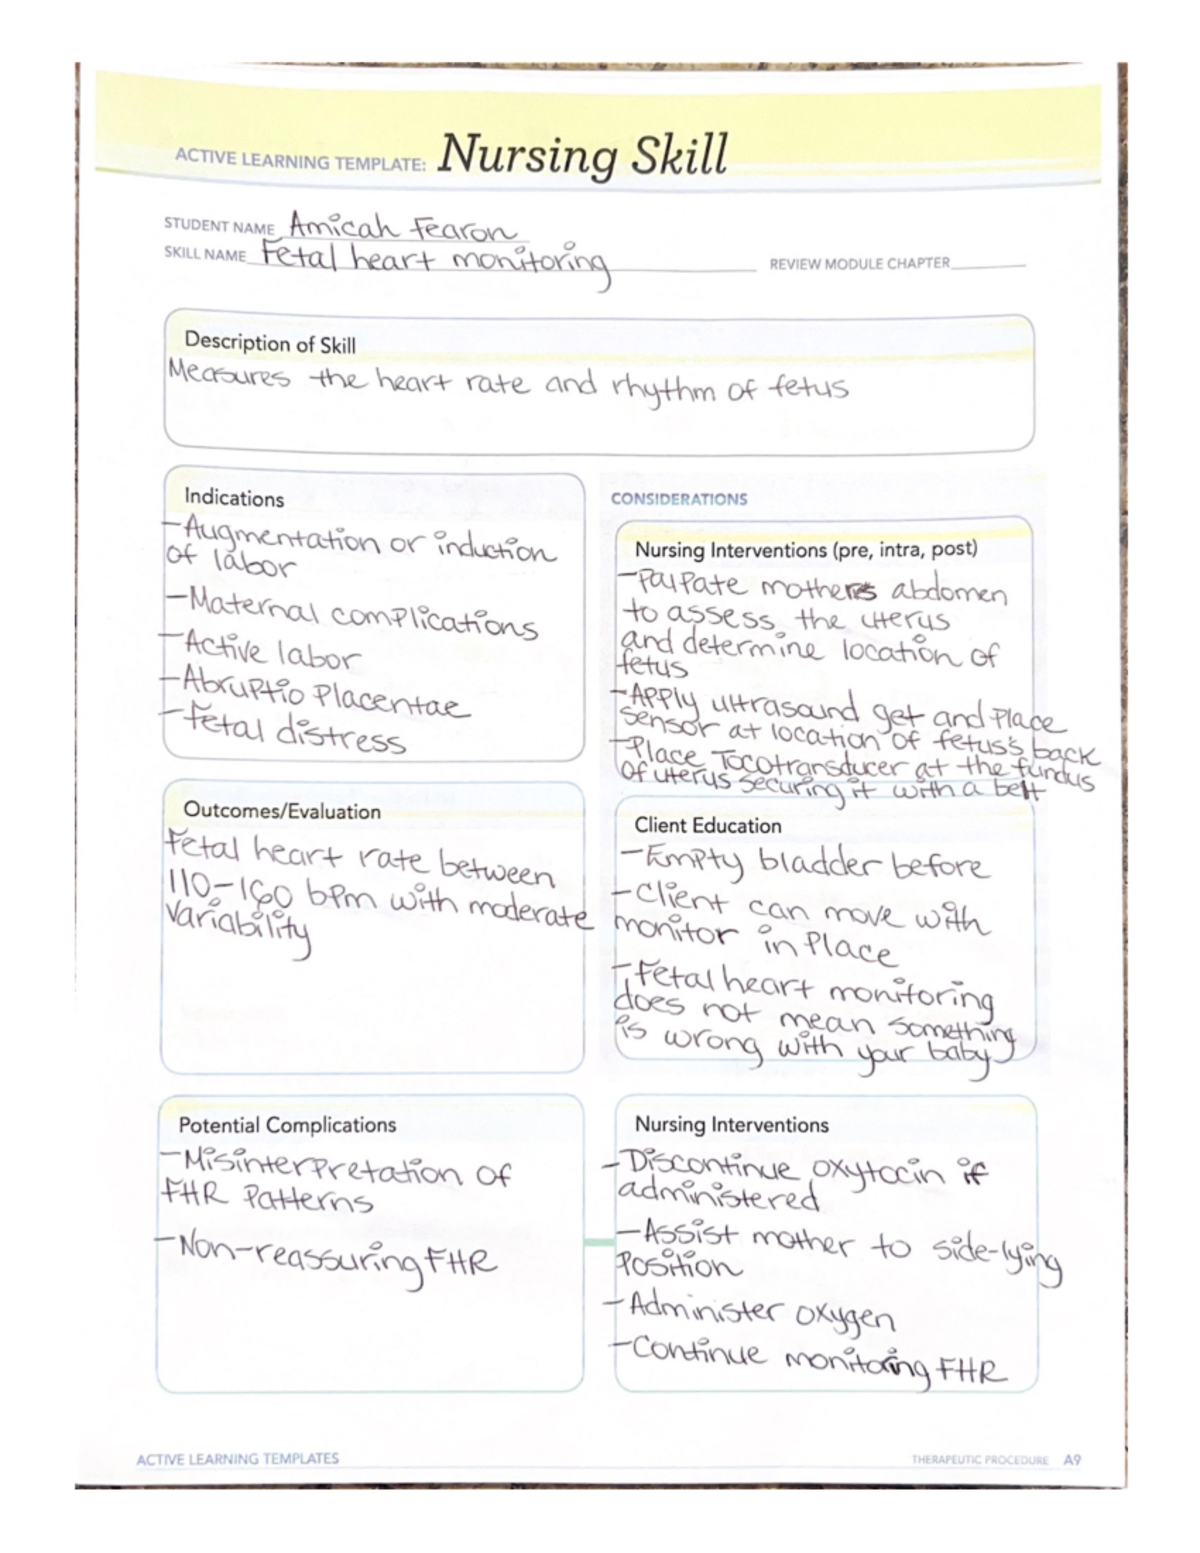 ACTIVE LEARNING TEMPLATE: Nursing Skill
STUDENT NAME Amicah Fearon
SKILL NAME Fetal heart monitoring REVIEW MODULE CHAPTER
Description of Skill
Measures the heart rate and rhythm of fetus
Indications
-Augmentation or induction
of labor
-Maternal complications
-Active labor
-Abruptio Placentae
-Fetal distress
CONSIDERATIONS
Nursing Interventions (pre, intra, post)
-Palpate mothers abdomen
to assess the uterus
and determine location of
fetus
-Apply ultrasound get and place
sensor at location of fetus's back
-Place Tocotransducer at the fundus
of uterus securing it with a belt
Outcomes/Evaluation
Fetal heart rate between
110-160 bpm with moderate
variability
Client Education
-Empty bladder before
-Client can move with
monitor in place
-Fetal heart monitoring
does not mean something
is wrong with your baby
Potential Complications
-Misinterpretation of
FHR patterns
-Non-reassuring FHR
Nursing Interventions
-Discontinue oxytocin if
administered
-Assist mother to side-lying
position
-Administer oxygen
-Continue monitoring FHR
ACTIVE LEARNING TEMPLATES
THERAPEUTIC PROCEDURE A9